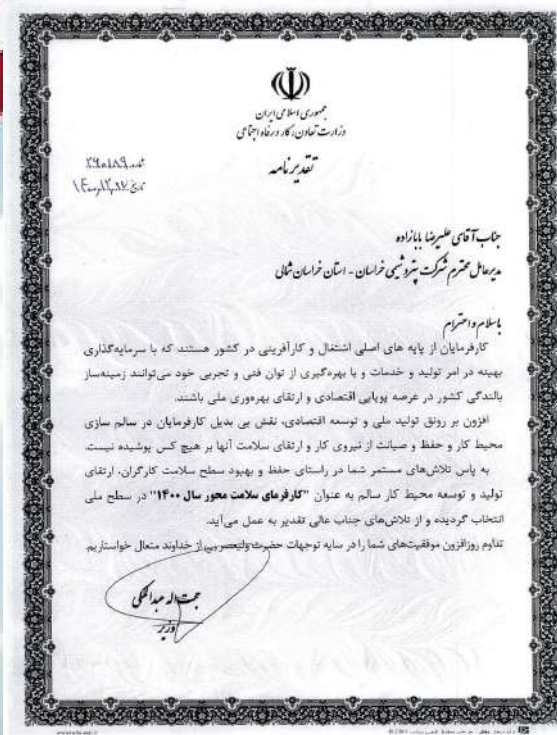 جمهوری اسلامی ایران
وزارت تعاون، کار و رفاه اجتماعی
تقدیرنامه
جناب آقای علیرضا بابازاده
مدیرعامل محترم شرکت پتروشیمی خراسان - استان خراسان شمالی
باسلام و احترام
کارفرمایان از پایه های اصلی اشتغال و کارآفرینی در کشور هستند که با سرمایه‌گذاری
بهینه در امر تولید و خدمات و با بهره‌گیری از توان فنی و تجربی خود می‌توانند زمینه‌ساز
بالندگی کشور در عرصه پویایی اقتصادی و ارتقای بهره‌وری ملی باشند.
افزون بر رونق تولید ملی و توسعه اقتصادی، نقش بی بدیل کارفرمایان در سالم سازی
محیط کار و حفظ و صیانت از نیروی کار و ارتقای سلامت آنها بر هیچ کس پوشیده نیست.
به پاس تلاش‌های مستمر شما در راستای حفظ و بهبود سطح سلامت کارگران، ارتقای
تولید و توسعه محیط کار سالم به عنوان "کارفرمای سلامت محور سال ۱۴۰۰" در سطح ملی
انتخاب گردیده و از تلاش‌های جناب عالی تقدیر به عمل می‌آید.
تداوم روزافزون موفقیت‌های شما را در سایه توجهات حضرت ولیعصر از خداوند متعال خواستاریم.
حجت اله عبدالملکی
وزیر